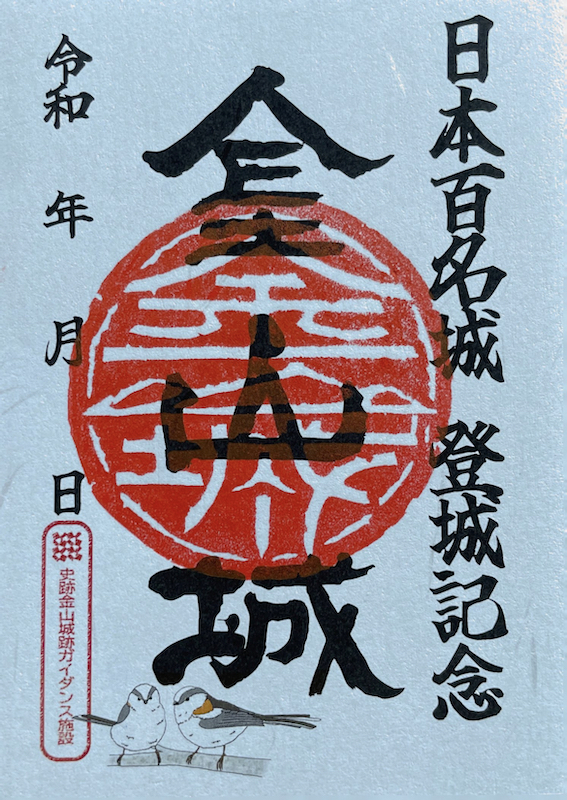 日本百名城 登城記念
金山城
令和 年 月 日
史跡金山城跡ガイダンス施設